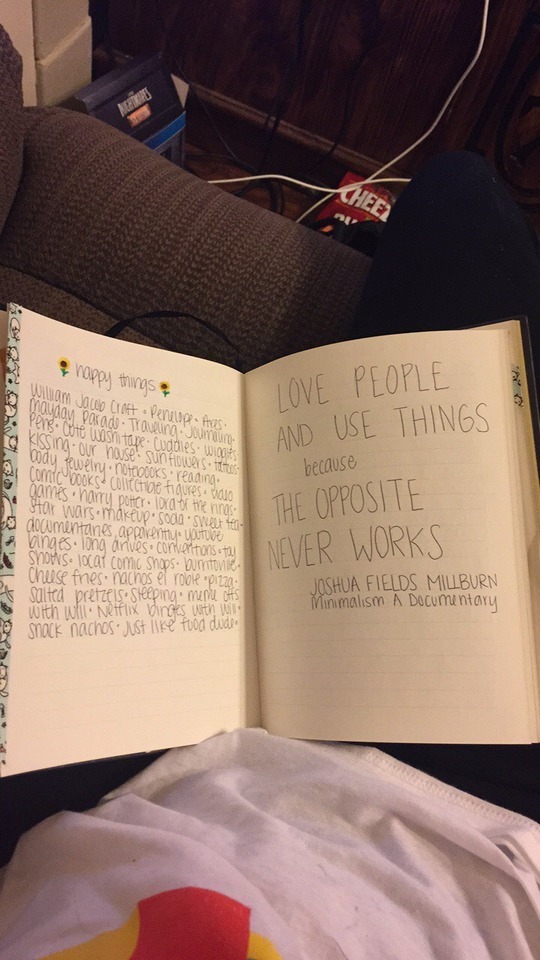 NIGHTMARES
CHEEZ
happy things
William Jacob Craft • Penelope • Ares •
Mayday Parade • Traveling • Journaling •
Pens • cute washi tape • cuddles • wiggles •
kissing • our house • sunflowers • tattoos •
body jewelry • notebooks • reading •
comic books • collectible figures • video
games • harry potter • lord of the rings •
star wars • makeup • soda • sweet tea •
documentaries, apparently • youtube
binges • long drives • conventions • toy
shows • local comic shops • burritoville •
cheese fries • nachos el roble • pizza •
salted pretzels • sleeping • meme offs
with will • Netflix binges with will •
snack nachos • just like food dude •
LOVE PEOPLE
AND USE THINGS
because
THE OPPOSITE
NEVER WORKS
JOSHUA FIELDS MILLBURN
Minimalism A Documentary